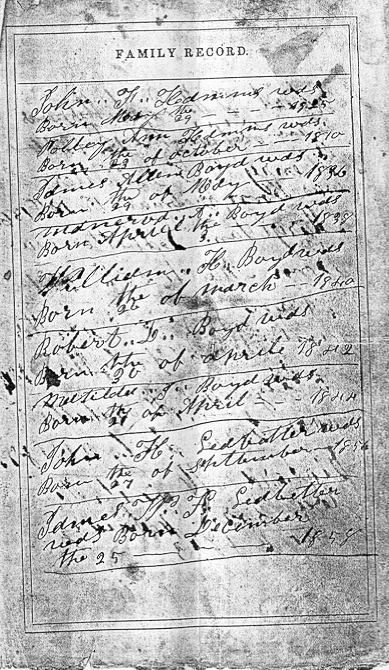 FAMILY RECORD.
John .. H .. Hamms was
Born May the 29 - - 1825
Ann Hamms was
Born the 29 of October - 1810
James Allen Boyd was
Born the 29 of May 1836
A .. Boyd was
Born April the 3 1838
William .. H .. Boyd was
Born the 26 of march - - 1840
Robert .. L .. Boyd was
Born the 20 of aprile 1842
Matilda .. J .. Boyd was
Born the 21 of April - - 1844
John .. H .. Ledbetter was
Born the 27 of September
James W P Ledbetter
was Born December
the 25 - - 1858